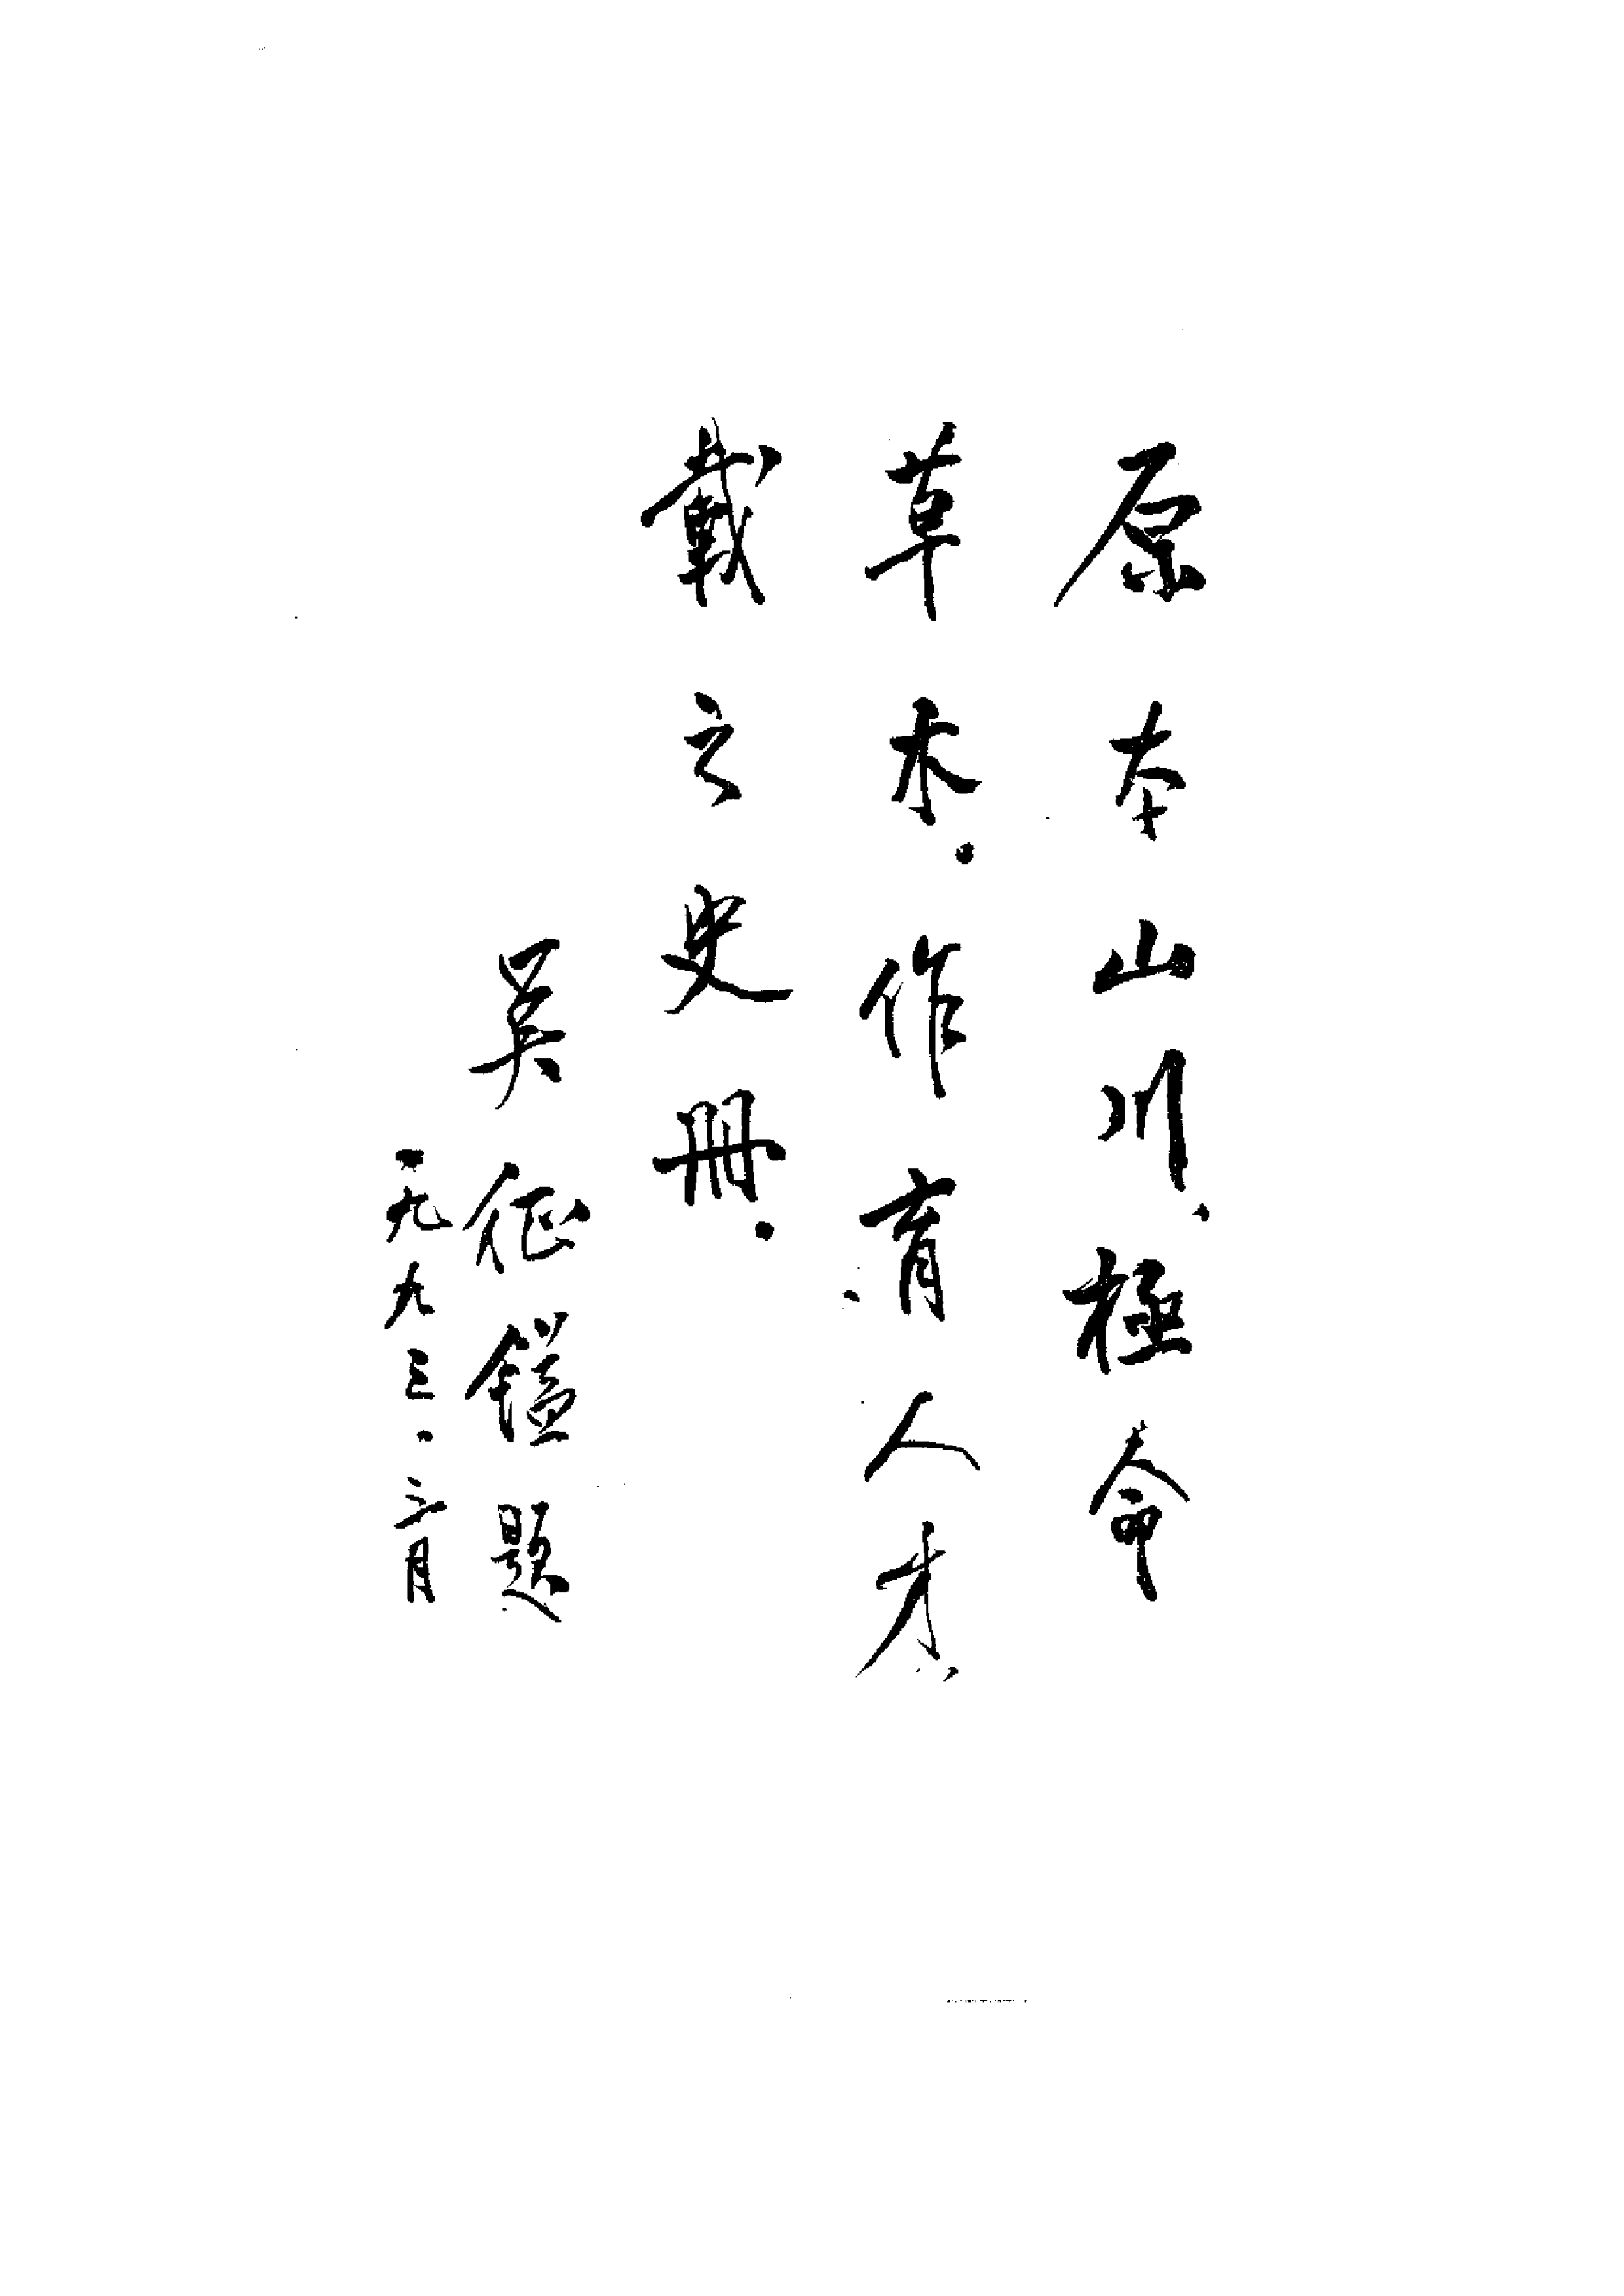 原本山川，極命
草木。作育人才，
載之史冊。
吴征鎰題
一九九三.三月